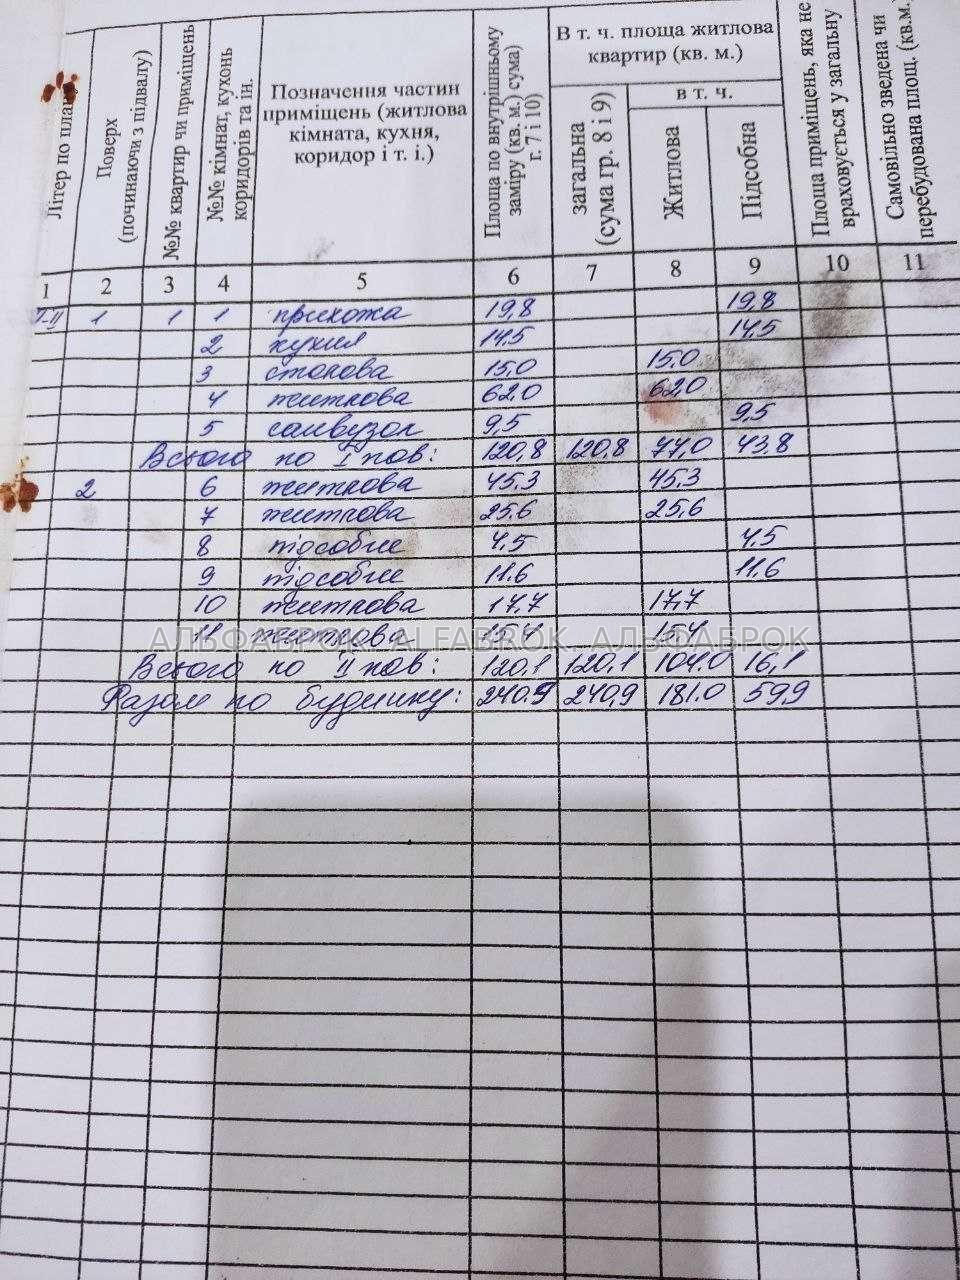 Літер по плану
Поверх (починаючи з підвалу)
№№ квартир чи приміщень
№№ кімнат, кухонь коридорів та ін.
Позначення частин приміщень (житлова кімната, кухня, коридор і т. і.)
Площа по внутрішньому заміру (кв. м.) сума) г. 7 і 10)
В т. ч. площа житлова квартир (кв. м.)
загальна (сума гр. 8 і 9)
в т. ч.
Житлова
Підсобна
Площа приміщень, яка не враховується у загальну
Самовільно зведена чи перебудована площ. (кв.м.)
1 2 3 4 5 6 7 8 9 10 11
1 1 1 прихожа 19,8 19,8
2 кухня 14,5 14,5
3 столова 15,0 15,0
4 житлова 62,0 62,0
5 санвузол 9,5 9,5
Всього по І пов: 120,8 120,8 77,0 43,8
2 6 житлова 45,3 45,3
7 житлова 25,6 25,6
8 підсобне 4,5 4,5
9 підсобне 11.6 11.6
10 житлова 17,7 17,7
11 житлова 15,4 15,4
АЛЬФАБРОК, ALFABROK, АЛЬФАБРОК
Всього по ІІ пов: 120,1 120,1 104.0 16,1
Разом по будинку: 240.9 240,9 181.0 59,9